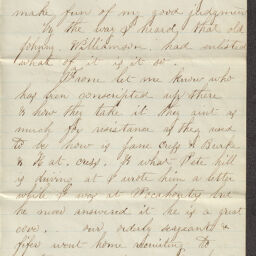 make fun of my good judgment
By the way I heard, that old
Johny Williamson had enlisted
what of it is it so.
let me know who
has been conscripted up there
& how they take it they aint as
much for resistance as they used
to be how is Jane Cress & Burke
& Kat. Cress. & what Pete hill
is driving at I wrote him a letter
while I was at Pocahontas but
he never answered it he is a great
our orderly sergeant &
fifer went home recruiting to